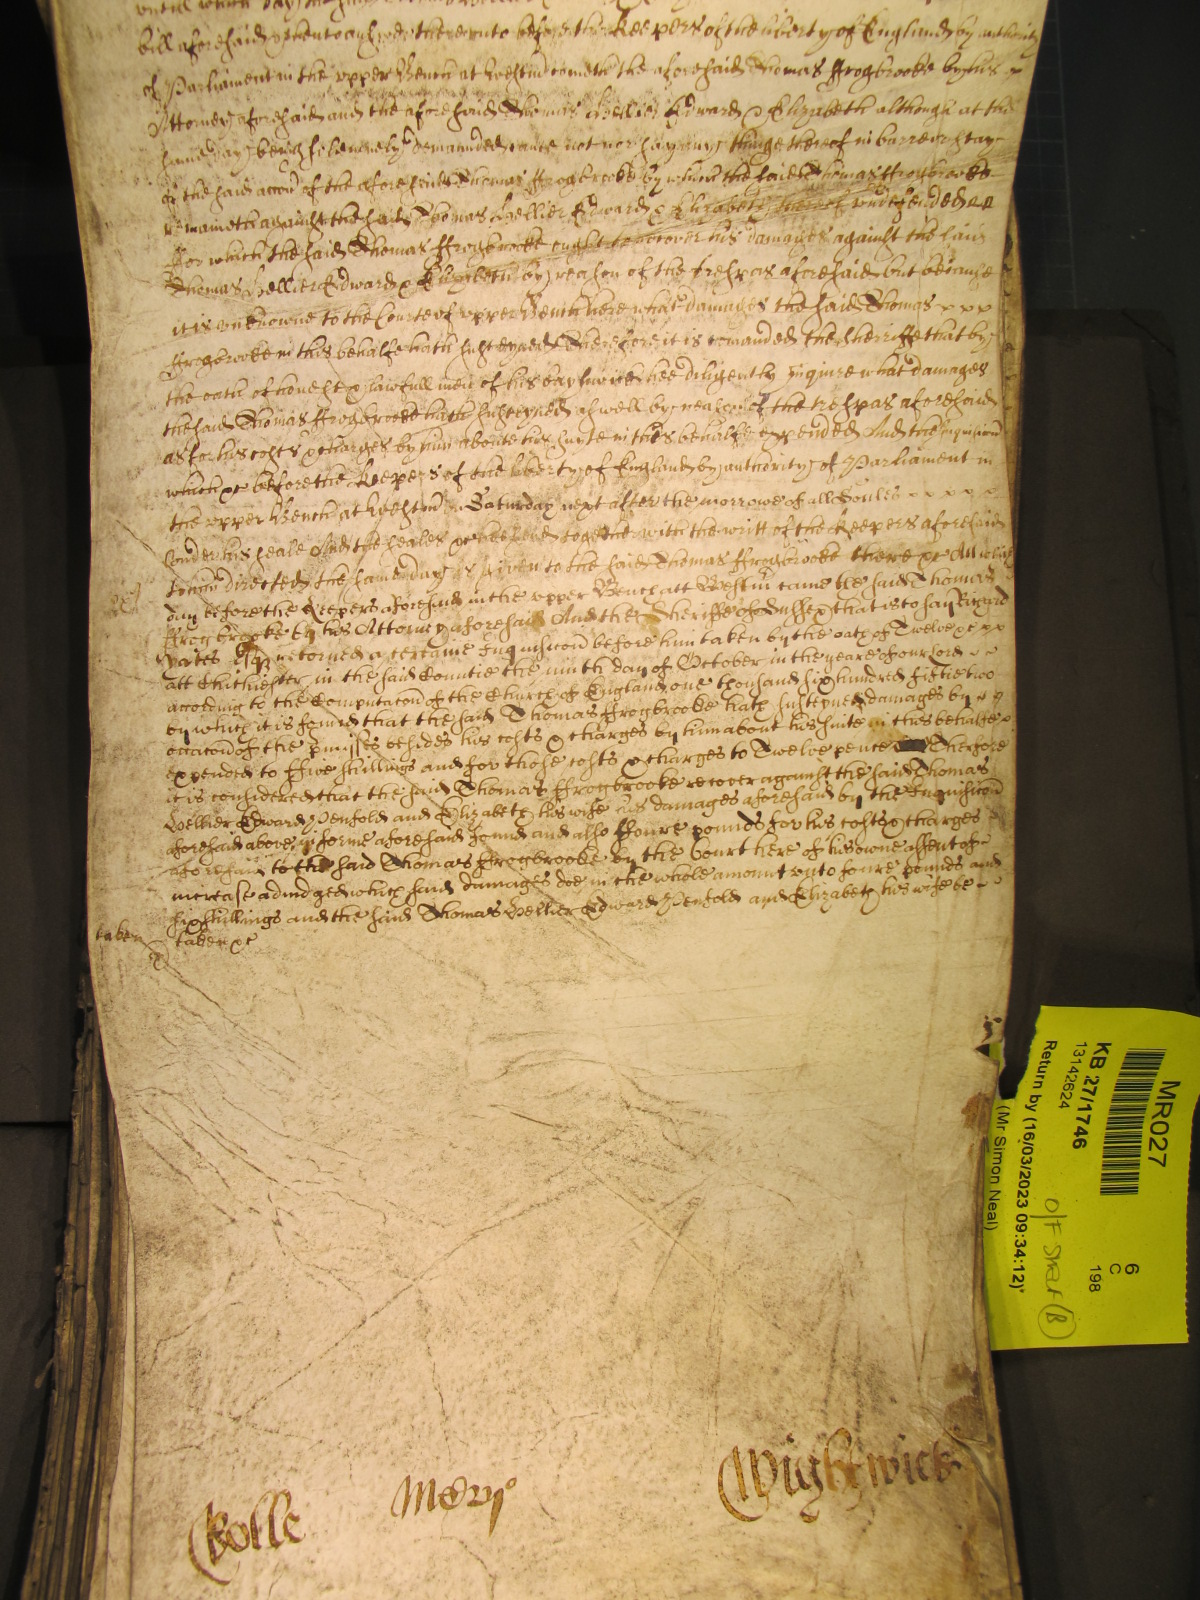 bill aforesaid & then to answere thereunto before the Keepers of the liberty of England by authority
of Parliament in the upper Bench at Westm cometh the aforesaid Thomas ffrogbrooke by his
Attorney aforesaid and the aforesaid Thomas Hellier Edward & Elizabeth although at the
same day being solemnely demaunded came not nor say any thinge thereof in barre or stay
of the said accon of the aforesaid Thomas ffrogbrooke by which the said Thomas ffrogbrooke
remaineth against the said Thomas Hellier Edward & Elizabeth thereof undefended
ffor which the said Thomas ffrogbrooke ought to recover his damages against the said
Thomas Hellier Edward & Elizabeth by reason of the trespas aforesaid but because
it is unknowne to the Courte of upper Bench here what damages the said Thomas x x x
ffrogbrooke in this behalfe hath susteyned Therefore it is comanded the Sherriffe that by
the oath of honest & lawfull men of his baylywick hee diligently inquire what damages
the said Thomas ffrogbrooke hath susteyned aswell by reason of the trespas aforesaid
as for his costs & charges by him aboute his suite in this behalfe expended And the inquisicon
which &c before the Keepers of the liberty of England by authority of Parliament in
the upper Bench at Westm on Saturday next after the morrowe of all Soules x x x x x
under his seale And the seales &c hee send together with the writt of the Keepers aforesaid
to him directed the same day is given to the said Thomas ffrogbrooke there &c At which
day before the Keepers aforesaid in the upper Bench att Westm came the said Thomas
ffrogbrooke by his Attorney aforesaid And the Sheriffe of Sussex that is to say Ricard
Yates Esq retorned a certaine Inquisicon before him taken by the oath of Twelve &c x x
att Chichester in the said Countie the ninth day of October in the yeare of our Lord
according to the Computacon of the Church of England one thousand six hundred fiftie two
by which it is found that the said Thomas ffrogbrooke hath susteyned damages by
occacon of the pmisses besides his costs & charges by him about his suite in this behalfe
expended to ffive shillings and for those costs & charges to Twelve pence Therfore
it is considered that the said Thomas ffrogbrooke recover against the said Thomas
Hellier Edward Penfold and Elizabeth his wife his damages aforesaid by the Inquisicon
aforesaid above in forme aforesaid found and also ffoure pounds for his costs & charges
aforesaid to the said Thomas ffrogbrooke by the Court here of his owne assent of
increase adiudged which said damages doe in the whole amount unto foure pounds and
six shillings and the said Thomas Hellier Edward Penfold and Elizabeth his wife be
taken taken &c
Rolle Mery Wightwick
MR027
KB 27/1746
13142624
Return by (16/03/2023 09:34:12)
(Mr Simon Neal)
6
C
198
O/F Shelf (B)